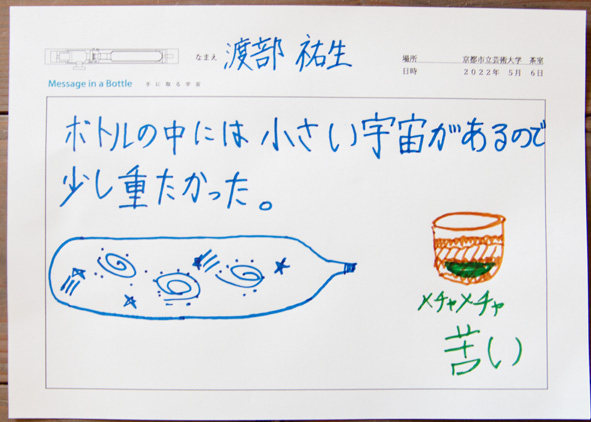 なまえ 渡部 祐生
場所 京都市立芸術大学 茶室
日時 2022年 5月 6日
Message in a Bottle 手に取る宇宙
ボトルの中には小さい宇宙があるので
少し重たかった。
メチャメチャ
苦い